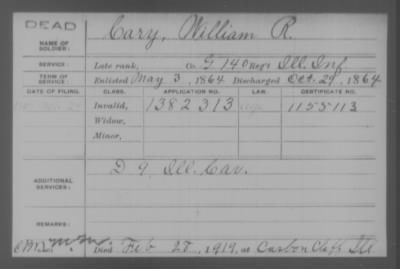 DEAD
NAME OF SOLDIER:
Cary, William R.
SERVICE:
Late rank, Co. G 140 Reg't Ill. Inf.
TERM OF SERVICE:
Enlisted May 3, 1864 Discharged Oct. 29, 1864
DATE OF FILING. CLASS. APPLICATION NO. LAW. CERTIFICATE NO.
Invalid, 1382313 1155113
Widow,
Minor,
ADDITIONAL SERVICES:
D 9. Ill. Cav.
REMARKS:
Died Feb 27, 1919, at Carbon Cliff Ill